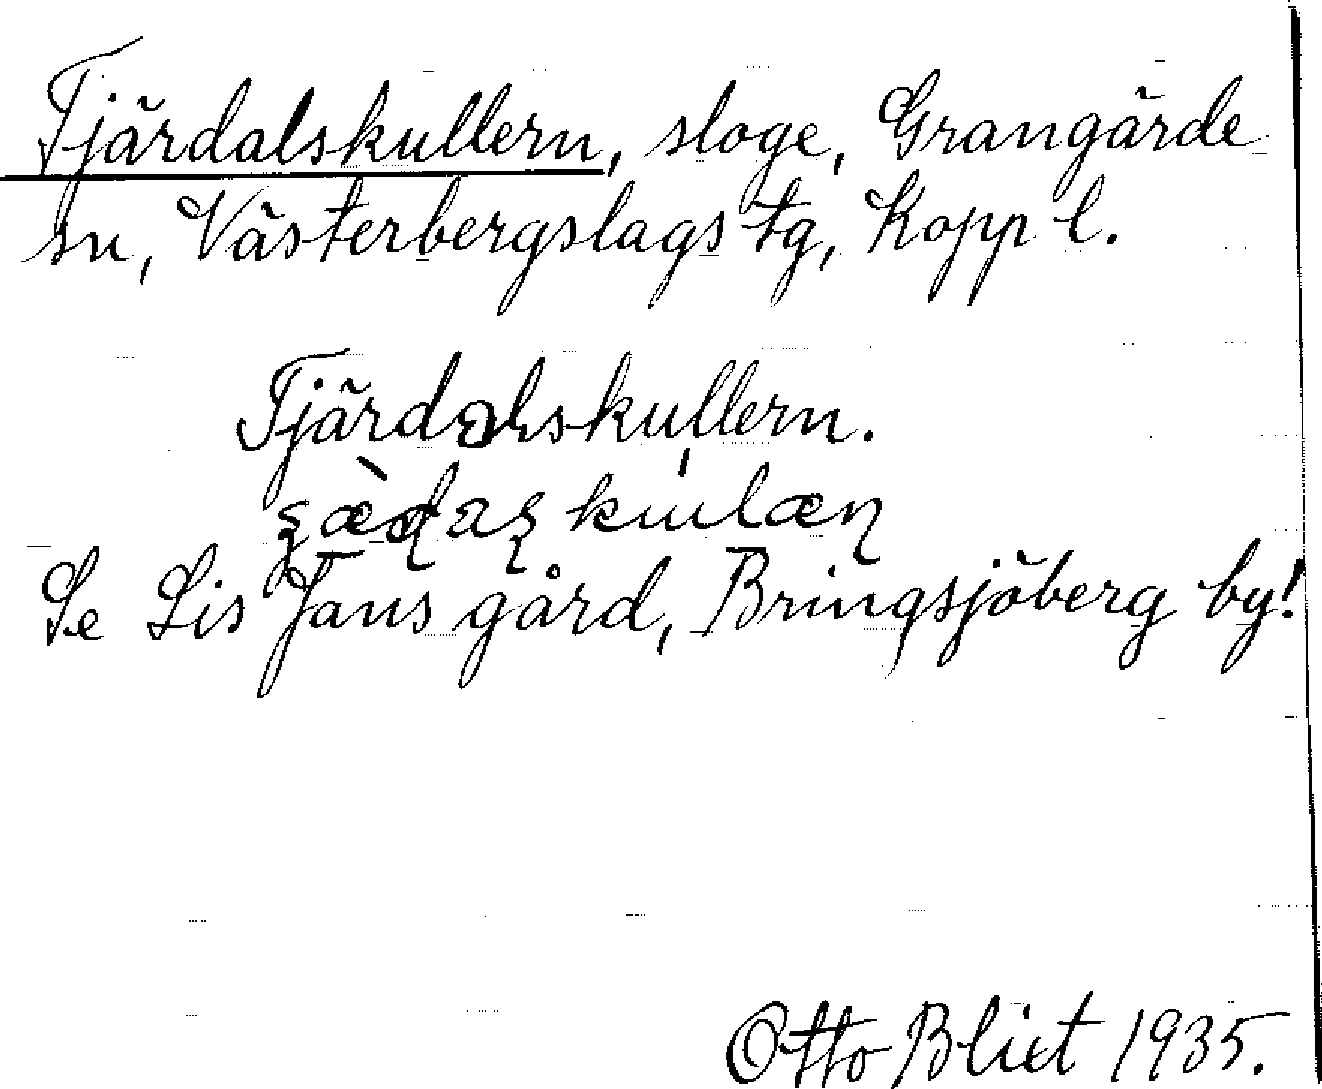 Tjärdalskullern, sloge, Grangärde
sn, Västerbergslags tg, Kopp l.
Tjärdalskullern.
Se Lis Jans gård, Bringsjöberg by!
Otto Blixt 1935.